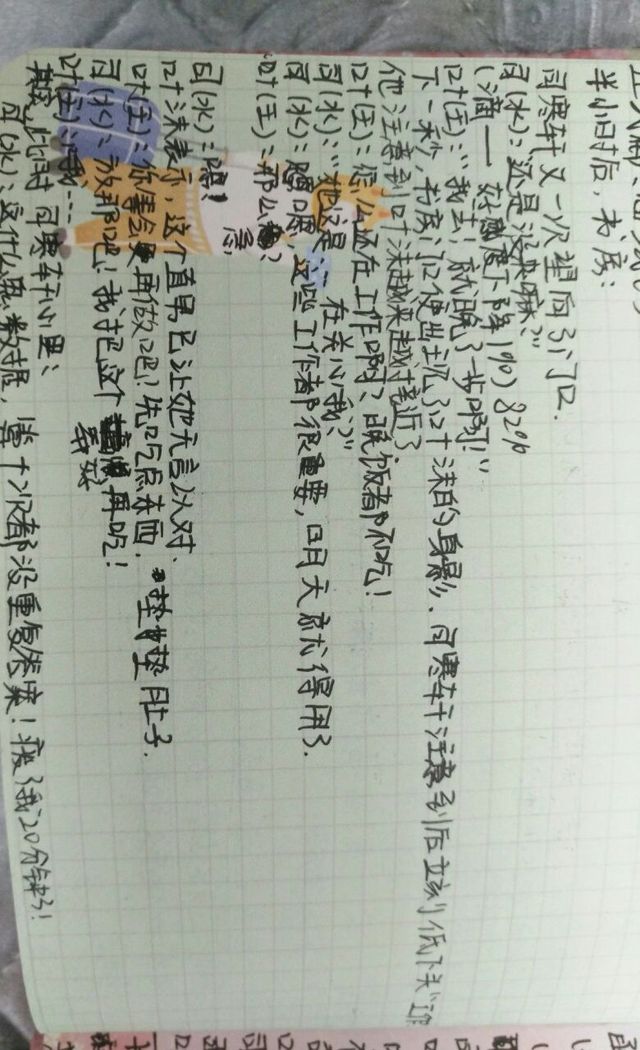 半小时后，书房：
司寒轩又一次望向了门口.
司(水)：还是没来嘛？
(滴— 好感度下降1%) 82%
叶(王)：“我去！就晚了一步啊！”
下一秒，书房门口便出现了叶沫的身影、司寒轩注意到后立刻低下头“工作
他注意到叶沫越来越接近了
叶(王)：怎么还在工作啊？晚饭都不吃！
司(水)：“她这是…在关心我？”
司(水)：嗯，这些工作都很重要，明天就得用了.
叶(王)：那么急？
司(水)：嗯！
叶沫表示，这个直男已让她无言以对、
叶(王)：你等会再做吧！先吃点东西，垫垫肚子.
司(水)：放那吧！我把这个弄好再吃！
叶(王)：哦…
其实，此时司寒轩心里：
司(水)：这什么思数据，算十次都没重复答案！废了我20分钟了！